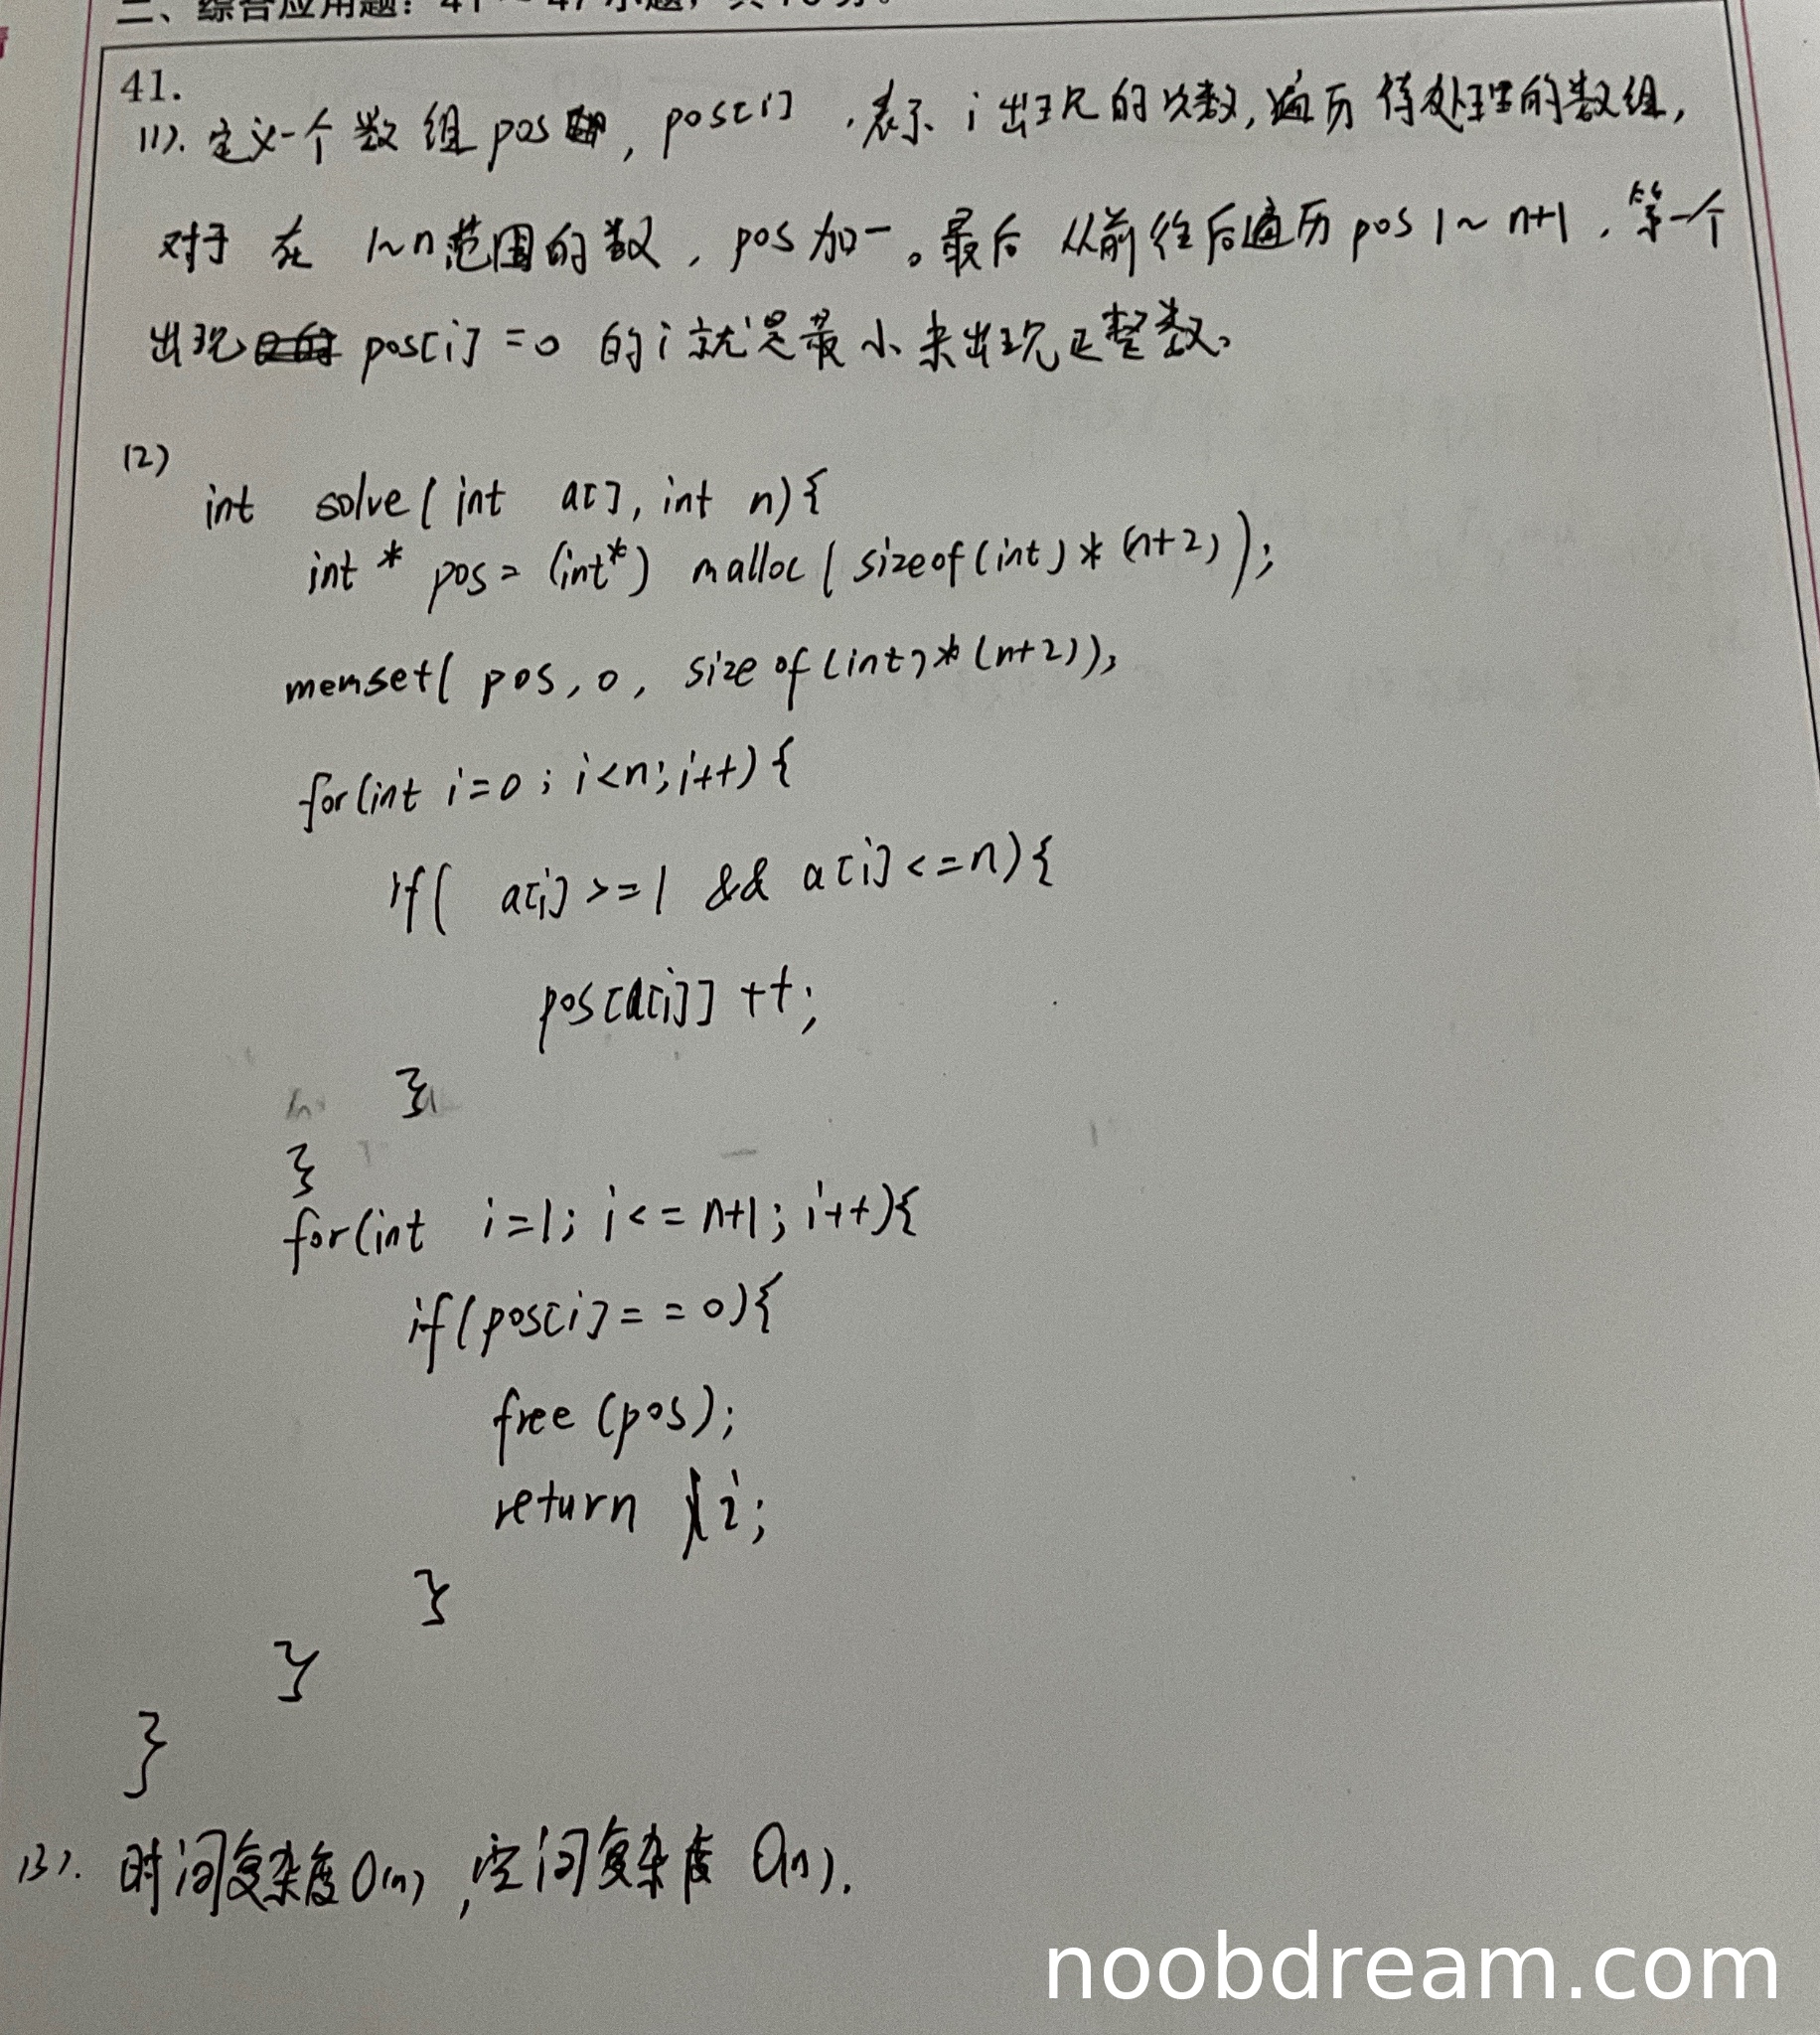 二、综合应用题：41～47小题，共70分。
41.
(1). 定义一个数组pos, pos[i], 表示 i 出现的次数, 遍历待处理的数组,
对于在 1~n范围的数, pos加一。最后从前往后遍历pos 1~n+1, 第一个
出现 pos[i]=0 的i就是最小未出现正整数。
(2)
int solve(int a[], int n){
int * pos = (int*) malloc( sizeof(int) * (n+2));
memset( pos, 0, sizeof(int)*(n+2));
for(int i=0; i<n; i++){
if( a[i]>=1 && a[i]<=n){
pos[a[i]]++;
}
}
for(int i=1; i<=n+1; i++){
if(pos[i]==0){
free(pos);
return i;
}
}
}
(3). 时间复杂度O(n), 空间复杂度 O(n).
noobdream.com